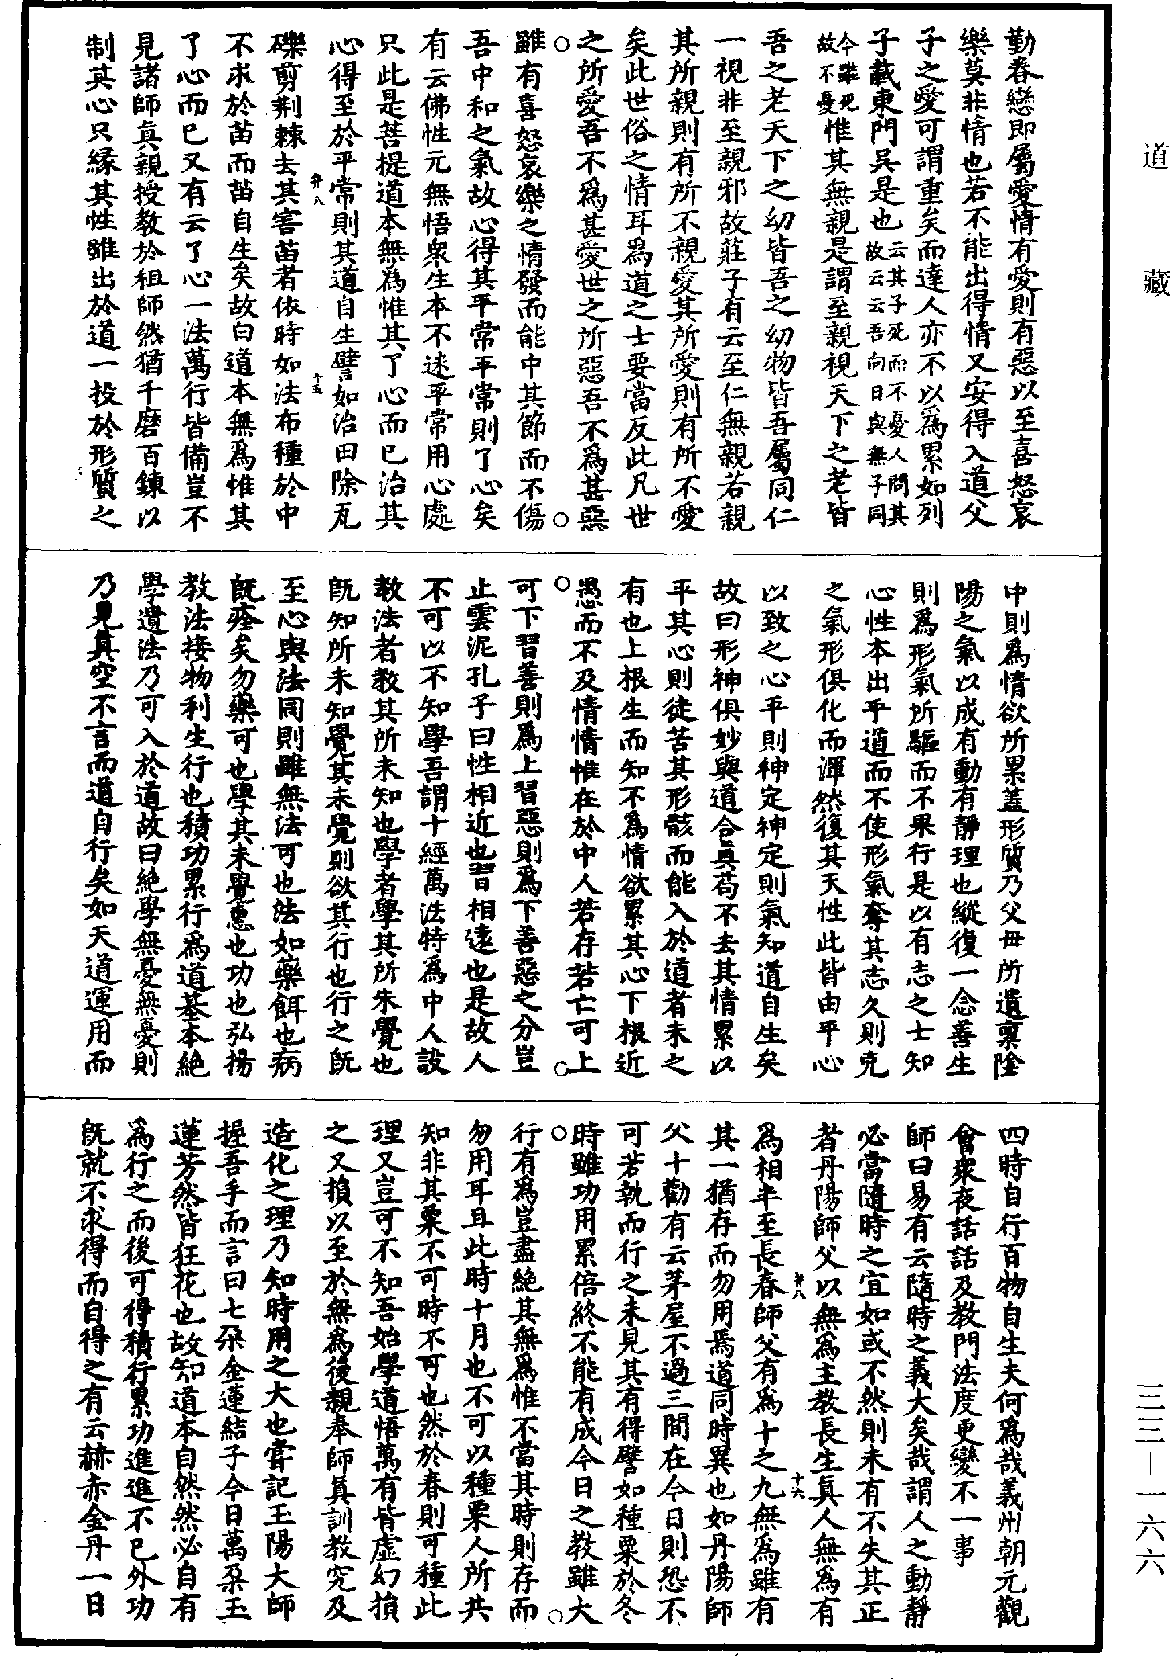 道藏
三三—一六六
勤眷戀即屬愛情有愛則有惡以至喜怒哀
樂莫非情也若不能出得情又安得入道父
子之愛可謂重矣而達人亦不以為累如列
子載東門吳是也云其子死而不憂人問其故云云吾向日與無子同
今雖死故不憂惟其無親是謂至親視天下之老皆
吾之老天下之幼皆吾之幼物皆吾屬同仁
一視非至親邪故莊子有云至仁無親若親
其所親則有所不親愛其所愛則有所不愛
矣此世俗之情耳為道之士要當反此凡世
之所愛吾不為甚愛世之所惡吾不為甚惡
雖有喜怒哀樂之情發而能中其節而不傷
吾中和之氣故心得其平常平常則了心矣
有云佛性元無悟衆生本不迷平常用心處
只此是菩提道本無為惟其了心而已治其
心得至於平常則其道自生譬如治田除瓦
弁八
十五
礫剪荆棘去其害苗者依時如法布種於中
不求於苗而苗自生矣故曰道本無為惟其
了心而已又有云了心一法萬行皆備豈不
見諸師真親授教於祖師然猶千磨百鍊以
制其心只緣其性雖出於道一投於形質之
中則為情欲所累蓋形質乃父母所遺稟陰
陽之氣以成有動有靜理也縱復一念善生
則為形氣所驅而不果行是以有志之士知
心性本出乎道而不使形氣奪其志久則克
之氣形俱化而渾然復其天性此皆由平心
以致之心平則神定神定則氣知道自生矣
故曰形神俱妙與道合真苟不去其情累以
平其心則徒苦其形骸而能入於道者未之
有也上根生而知不為情欲累其心下根近
愚而不及情情惟在於中人若存若亡可上
可下習善則為上習惡則為下善惡之分豈
止雲泥孔子曰性相近也習相遠也是故人
不可以不知學吾謂十經萬法特為中人設
教法者教其所未知也學者學其所未覺也
既知所未知覺其未覺則欲其行也行之既
至心與法同則雖無法可也法如藥餌也病
既痊矣勿藥可也學其未覺惠也功也弘揚
教法接物利生行也積功累行為道基本絕
學遺法乃可入於道故曰絕學無憂無憂則
乃見真空不言而道自行矣如天道運用而
四時自行百物自生夫何為哉義州朝元觀
會衆夜話話及教門法度更變不一事
師曰易有云隨時之義大矣哉謂人之動靜
必當隨時之宜如或不然則未有不失其正
者丹陽師父以無為主教長生真人無為有
為相半至長春師父有為十之九無為雖有
弁八
十六
其一猶存而勿用焉道同時異也如丹陽師
父十勸有云茅屋不過三間在今日則恐不
可若執而行之未見其有得譬如種粟於冬
時雖功用累倍終不能有成今日之教雖大
行有為豈盡絕其無為惟不當其時則存而
勿用耳且此時十月也不可以種粟人所共
知非其粟不可時不可也然於春則可種此
理又豈可不知吾始學道悟萬有皆虛幻損
之又損以至於無為後親奉師真訓教究及
造化之理乃知時用之大也嘗記玉陽大師
握吾手而言曰七朵金蓮結子今日萬朵玉
蓮芳然皆狂花也故知道本自然然必自有
為行之而後可得積行累功進進不已外功
既就不求得而自得之有云赫赤金丹一日